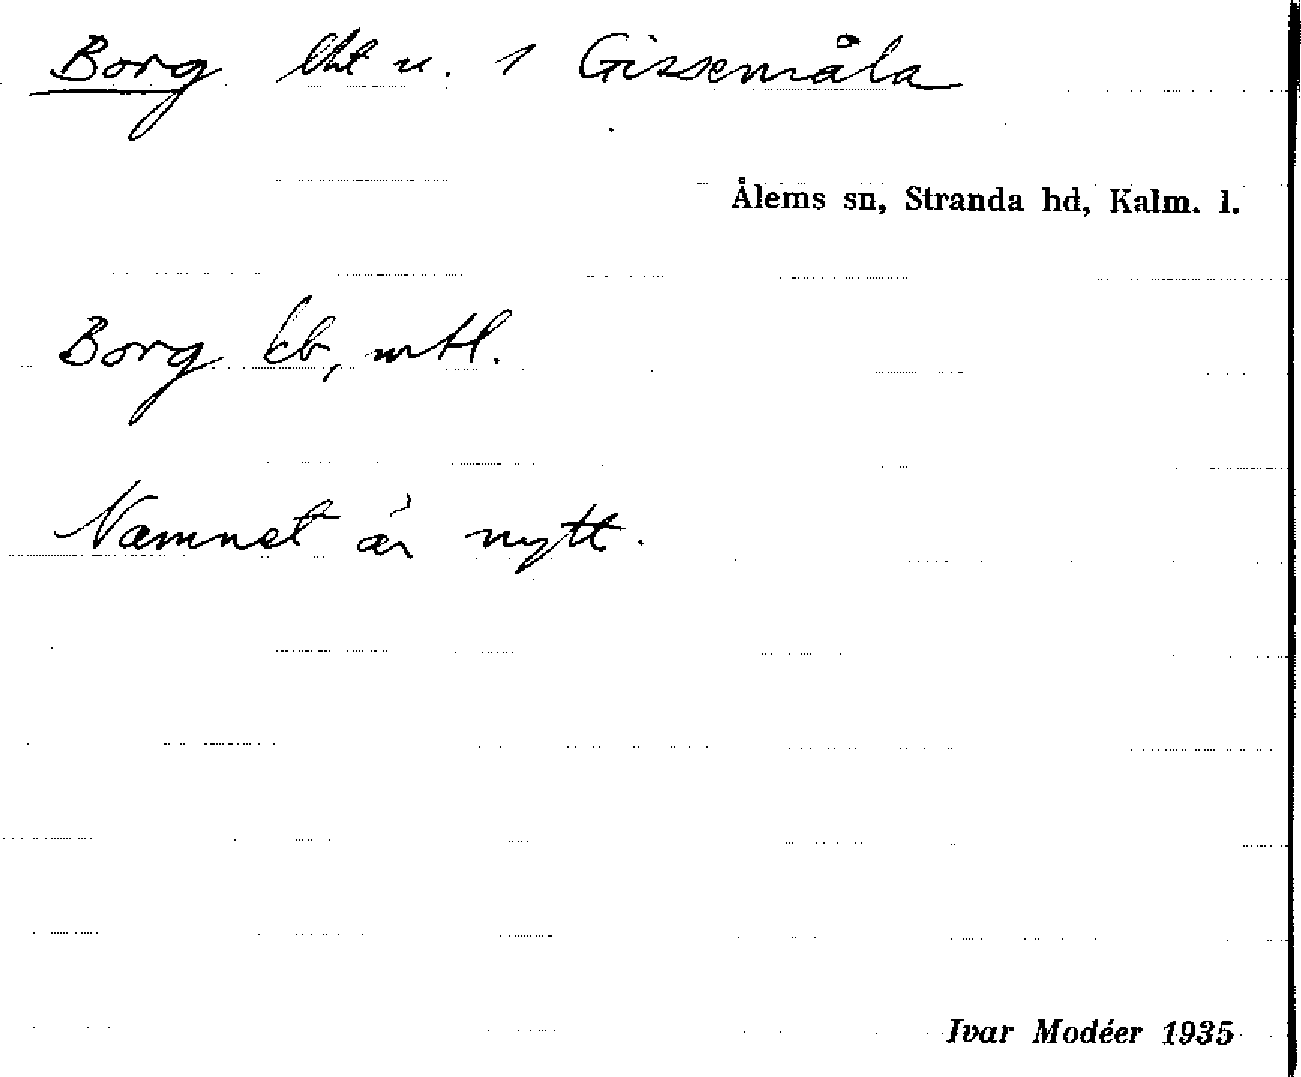 Borg lht u. 1 Gissemåla
Ålems sn, Stranda hd, Kalm. l.
Borg kb, mtl.
Namnet är nytt.
Ivar Modéer 1935